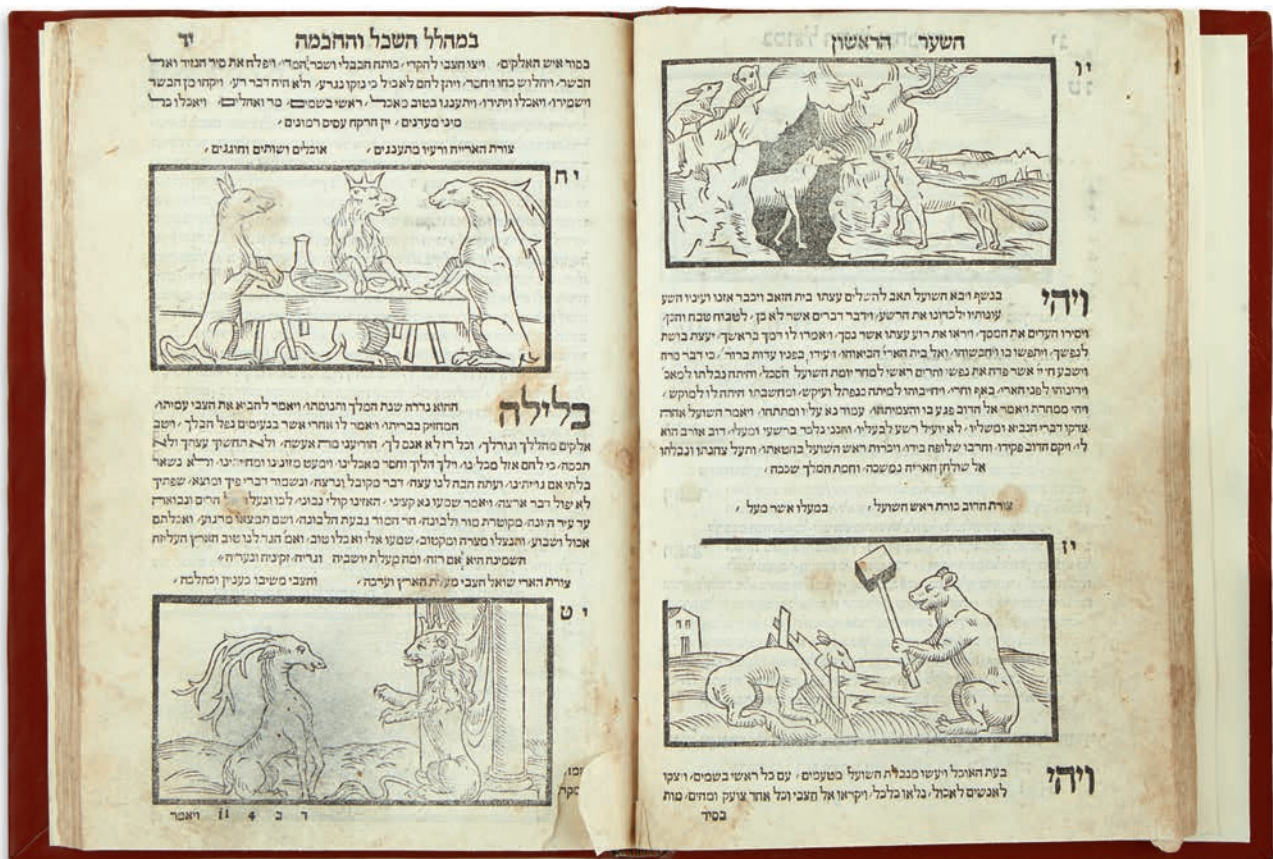 השער הראשון
יו
ויהי בנשף ויבא השועל תאב להשלים עצתו בית הזאב ויכבר אזנו ועיניו השע
עונותיו ילכדונו את הרשע, וידבר דברים אשר לא כן, לטבוח טבח והכן,
ויסירו העדים את המסך, ויראו את רוע עצתו אשר נסך, ויאמרו לו דמך בראשך, יעצת בושת
לנפשך, ויתפשו בו ויחבשוהו, ואל בית הארי הביאוהו, ויעידו בפניו עדות ברור, כי דבר סרה
וישבע חיי אשר פדה את נפשי והרים ראשי למחר יומת השועל הסכל, והיתה נבלתו למאכ
וידונוהו לפני הארי, באף וחרי, ויחייבוהו למיתה כנפתל ועיקש, ומחשבתו היתה לו למוקש,
ויהי ממחרת ויאמר אל הדוב פגע בו והצמיתהו, עמוד נא עליו ומתתהו, ויאמר השועל אהה
צדקו דברי הנביא ומשליו, לא יועיל רשע לבעליו, והנני נלכד ברשעי ומעלי, דוב אורב הוא
לי, ויקם הדוב פקידו, וחרבו שלופה בידו, ויכרות ראש השועל בחטאתו, ותעל צחנתו ונבלתו
אל שולחן האריה נמשכה, וחמת המלך שככה,
צורת הדוב כורת ראש השועל, במעלו אשר מעל,
יז
ויהי בעת האוכל ויעשו מנבלת השועל מטעמים, עם כל ראשי בשמים, ויצקו
לאנשים לאכול, נלאו כלכל, ויקראו אל הצבי וכל אחד צועק ומהים, מות
בסיר
במהלל השכל והחכמה
יד
בסיר איש האלקים, ויצו הצבי לכותח הבבלי ושכר המדי, ויפלח את סיר הנזיד
הבשר, ויחלוש כחו ויחסר, ויתן להם לאכול כי נזקו נגרע, ולא היה דבר רע, ויקחו מן הבשר
וישמירו, ויאכלו ויתירו, ויתענגו בטוב מאכל, ראשי בשמים, מר ואהלים, ויאכלו כל
מיני מעדנים, יין הרקח עסיס רמונים,
צורת האריה ורעיו מתענגים, אוכלים ושותים וחוגגים,
יח
בלילה ההוא נדדה שנת המלך והנומתו, ויאמר להביא את הצבי עמיתו,
המחזיק בבריתו, ויאמר לו אחרי אשר בנעימים נפל חבלך, ויטב
אלקים מהללך וגורלך, וכל רז לא אנס לך, הוריעני מה אעשה, ולא תחשוך עצתך ולא
תכסה, כי לחם אזל מכלינו, וילך הליך וחסר מאכלינו, וימעט מזונינו ומחייתינו, ולא נשאר
בלתי אם גוייתינו, ועתה הבה לנו עצה, דבר מקובל ונרצה, ונשמור דברי פיך ומוצא שפתיך
לא יפול דבר ארצה, ויאמר שמעו נא קציני, האזינו קולי נבוני, לכו ונעלה אל הרים ונבואה
עד עיר היונה, מקוטרת מור ולבונה, הר המור גבעת הלבונה, ושם תמצאו מרגוע, ואכלתם
אכול ושבוע, ותנצלו מצרה ומקטוב, שמעו אלי ואכלו טוב, ואמ הגד לנו טוב הארץ העליזה
השמינה היא אם רזה, ומה מעלת יושביה ונריה, זקיניה ונעריה,
צורת הארי שואל הצבי מעלת הארץ וערכה, והצבי משיבו כענין וכהלכה,
יט
ד ב 4 11 ויאמר